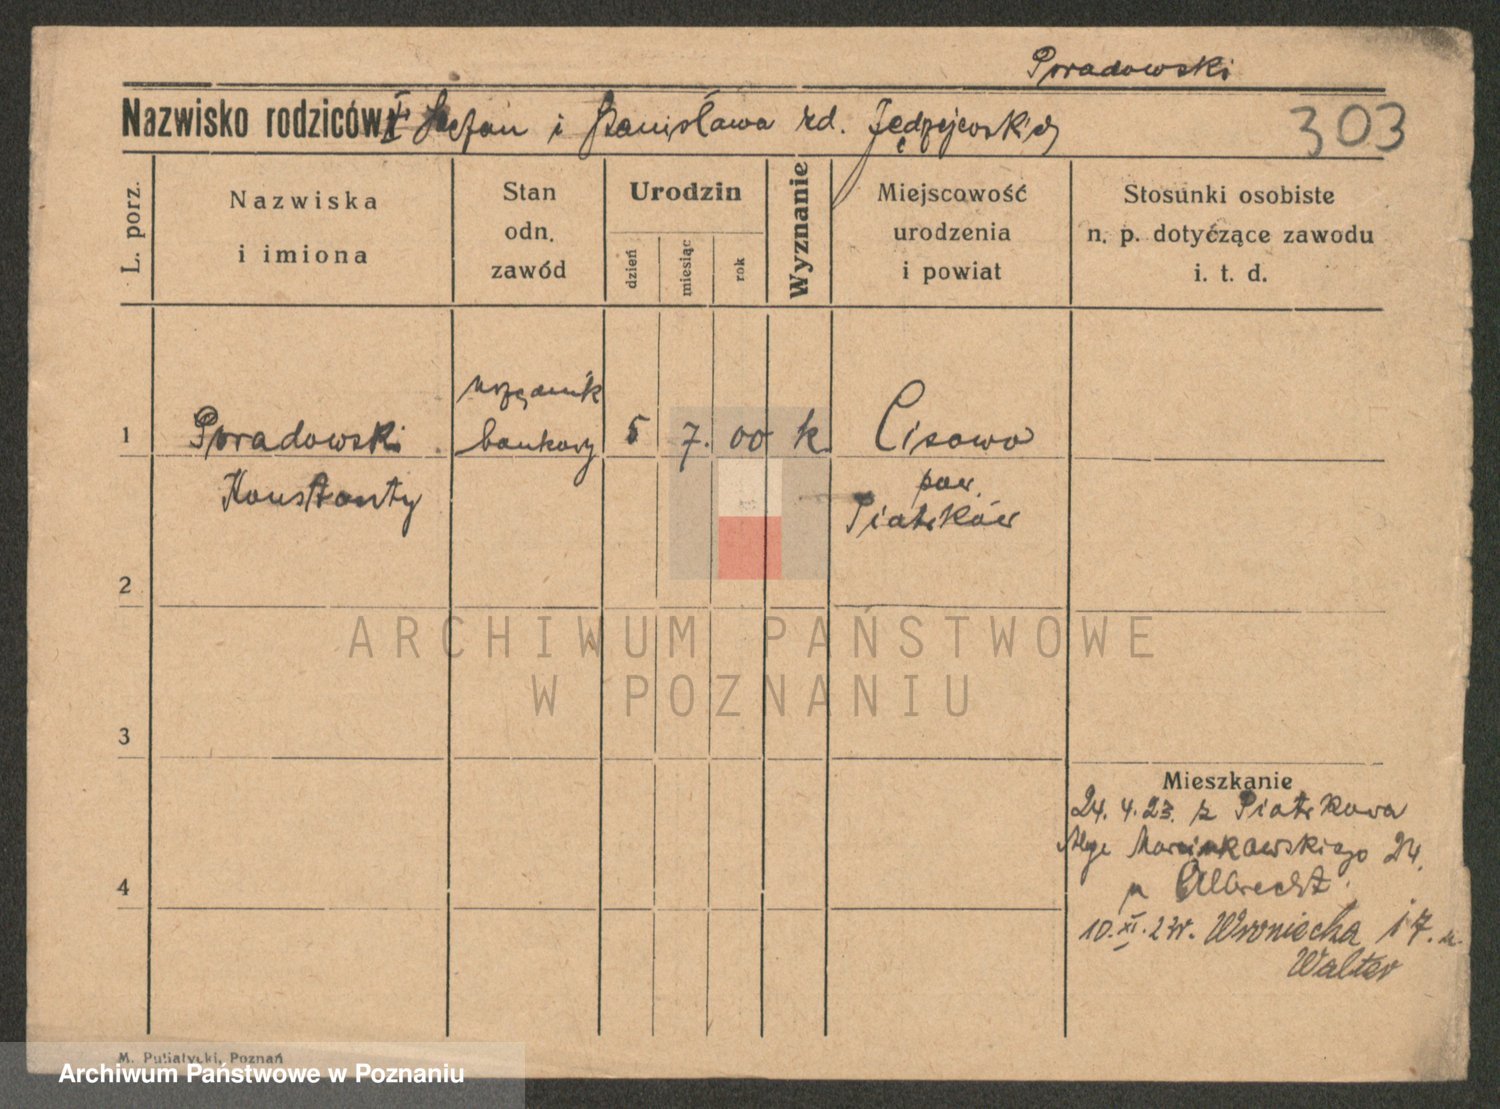 Poradowski
Nazwisko rodziców: Stefan i Stanisława rd. Jędrzejewskich
303
L. porz.
Nazwiska
i imiona
Stan
odn.
zawód
Urodzin
dzień
miesiąc
rok
Wyznanie
Miejscowość
urodzenia
i powiat
Stosunki osobiste
n. p. dotyczące zawodu
i. t. d.
1
Poradowski
Konstanty
urzędnik
bankowy
5
7.
00
k
Cisowo
pow.
Piotrków
2
ARCHIWUM PAŃSTWOWE
W POZNANIU
3
4
Mieszkanie
24. 4. 23. z Piotrkowa
Aleje Marcinkowskiego 24.
u Albrecht.
10. XI. 23r. Wroniecka 17. u
Walter
M. Puliatycki, Poznań
Archiwum Państwowe w Poznaniu